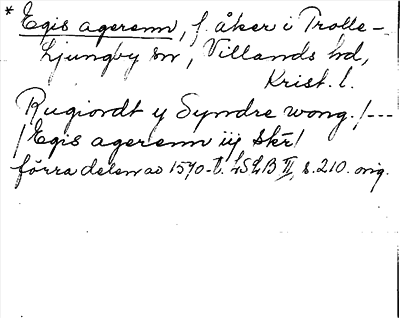 * Egis agerenn, f. åker i Trolle-
Ljungby sn, Villands hd,
Krist. l.
Rugiordt y Syndre wong. /---
/ Egis agerenn iij Skr/
förra delen av 1570-t. LSLB II, s. 210. orig.